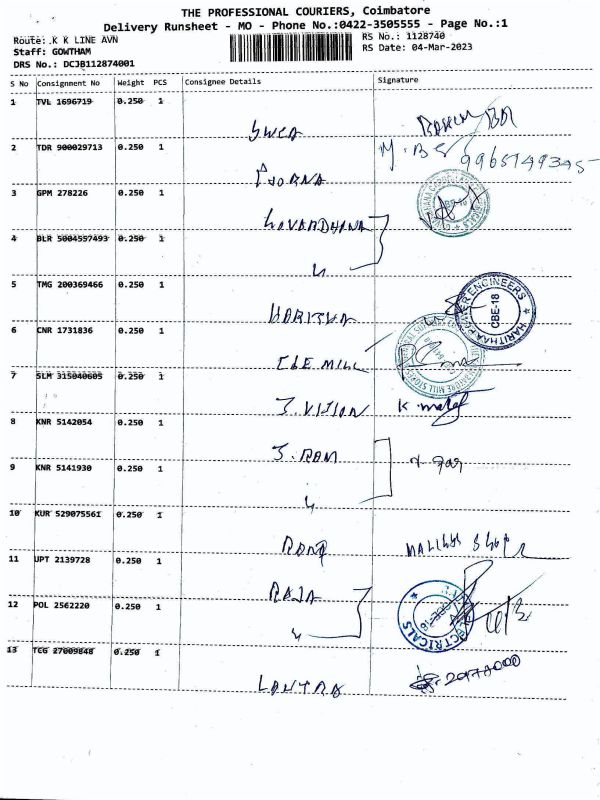 THE PROFESSIONAL COURIERS, Coimbatore
Delivery Runsheet - MO - Phone No.:0422-3505555 - Page No.:1
Route: K K LINE AVN RS No.: 1128740
Staff: GOWTHAM RS Date: 04-Mar-2023
DRS No.: DCJB112874001
S No Consignment No Weight PCS Consignee Details Signature
1 TVL 1696719 0.250 1
2 TDR 900029713 0.250 1 9965149345
3 GPM 278226 0.250 1 GOVARDHANA
4 BLR 5004557493 0.250 1
5 TMG 200369466 0.250 1 HARITHA HARITHAA POWER ENGINEERS CBE-18
6 CNR 1731836 0.250 1 CBE MILL
7 SLM 315040605 0.250 1 J. VISION
8 KNR 5142054 0.250 1 J. RAM
9 KNR 5141930 0.250 1
10 KUR 529075561 0.250 1
11 UPT 2139728 0.250 1 RAJA
12 POL 2562220 0.250 1
13 TCG 27009848 0.250 1